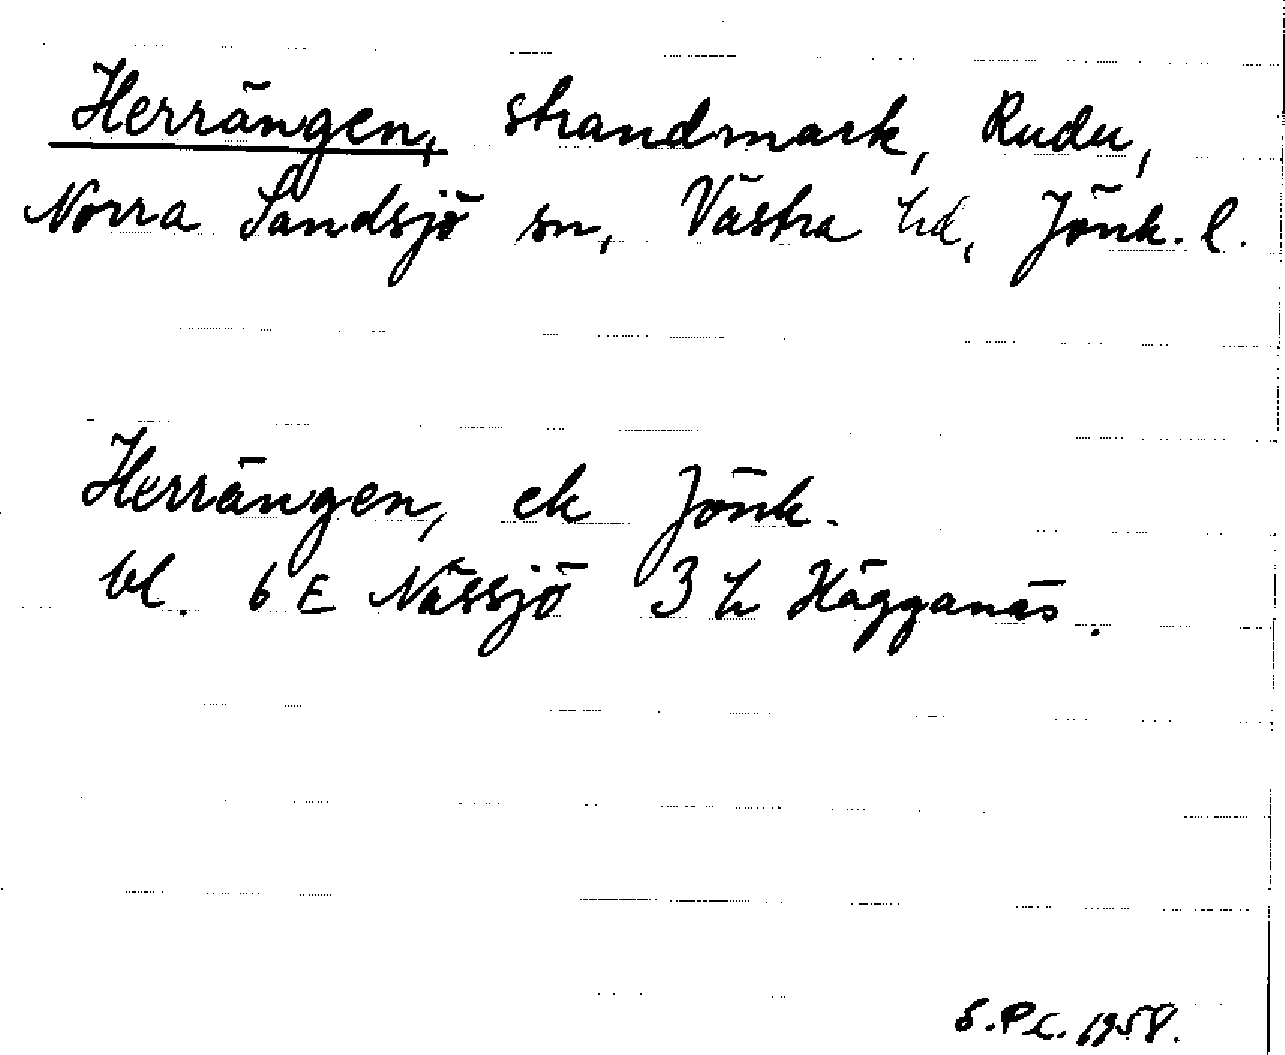 Herrängen, strandmark, Rudu,
Norra Sandsjö sn, Västra hd, Jönk. l.
Herrängen, ek Jönk.
bl. 6 E Nässjö 3 h Hägganäs.
S.P.C. 1958.